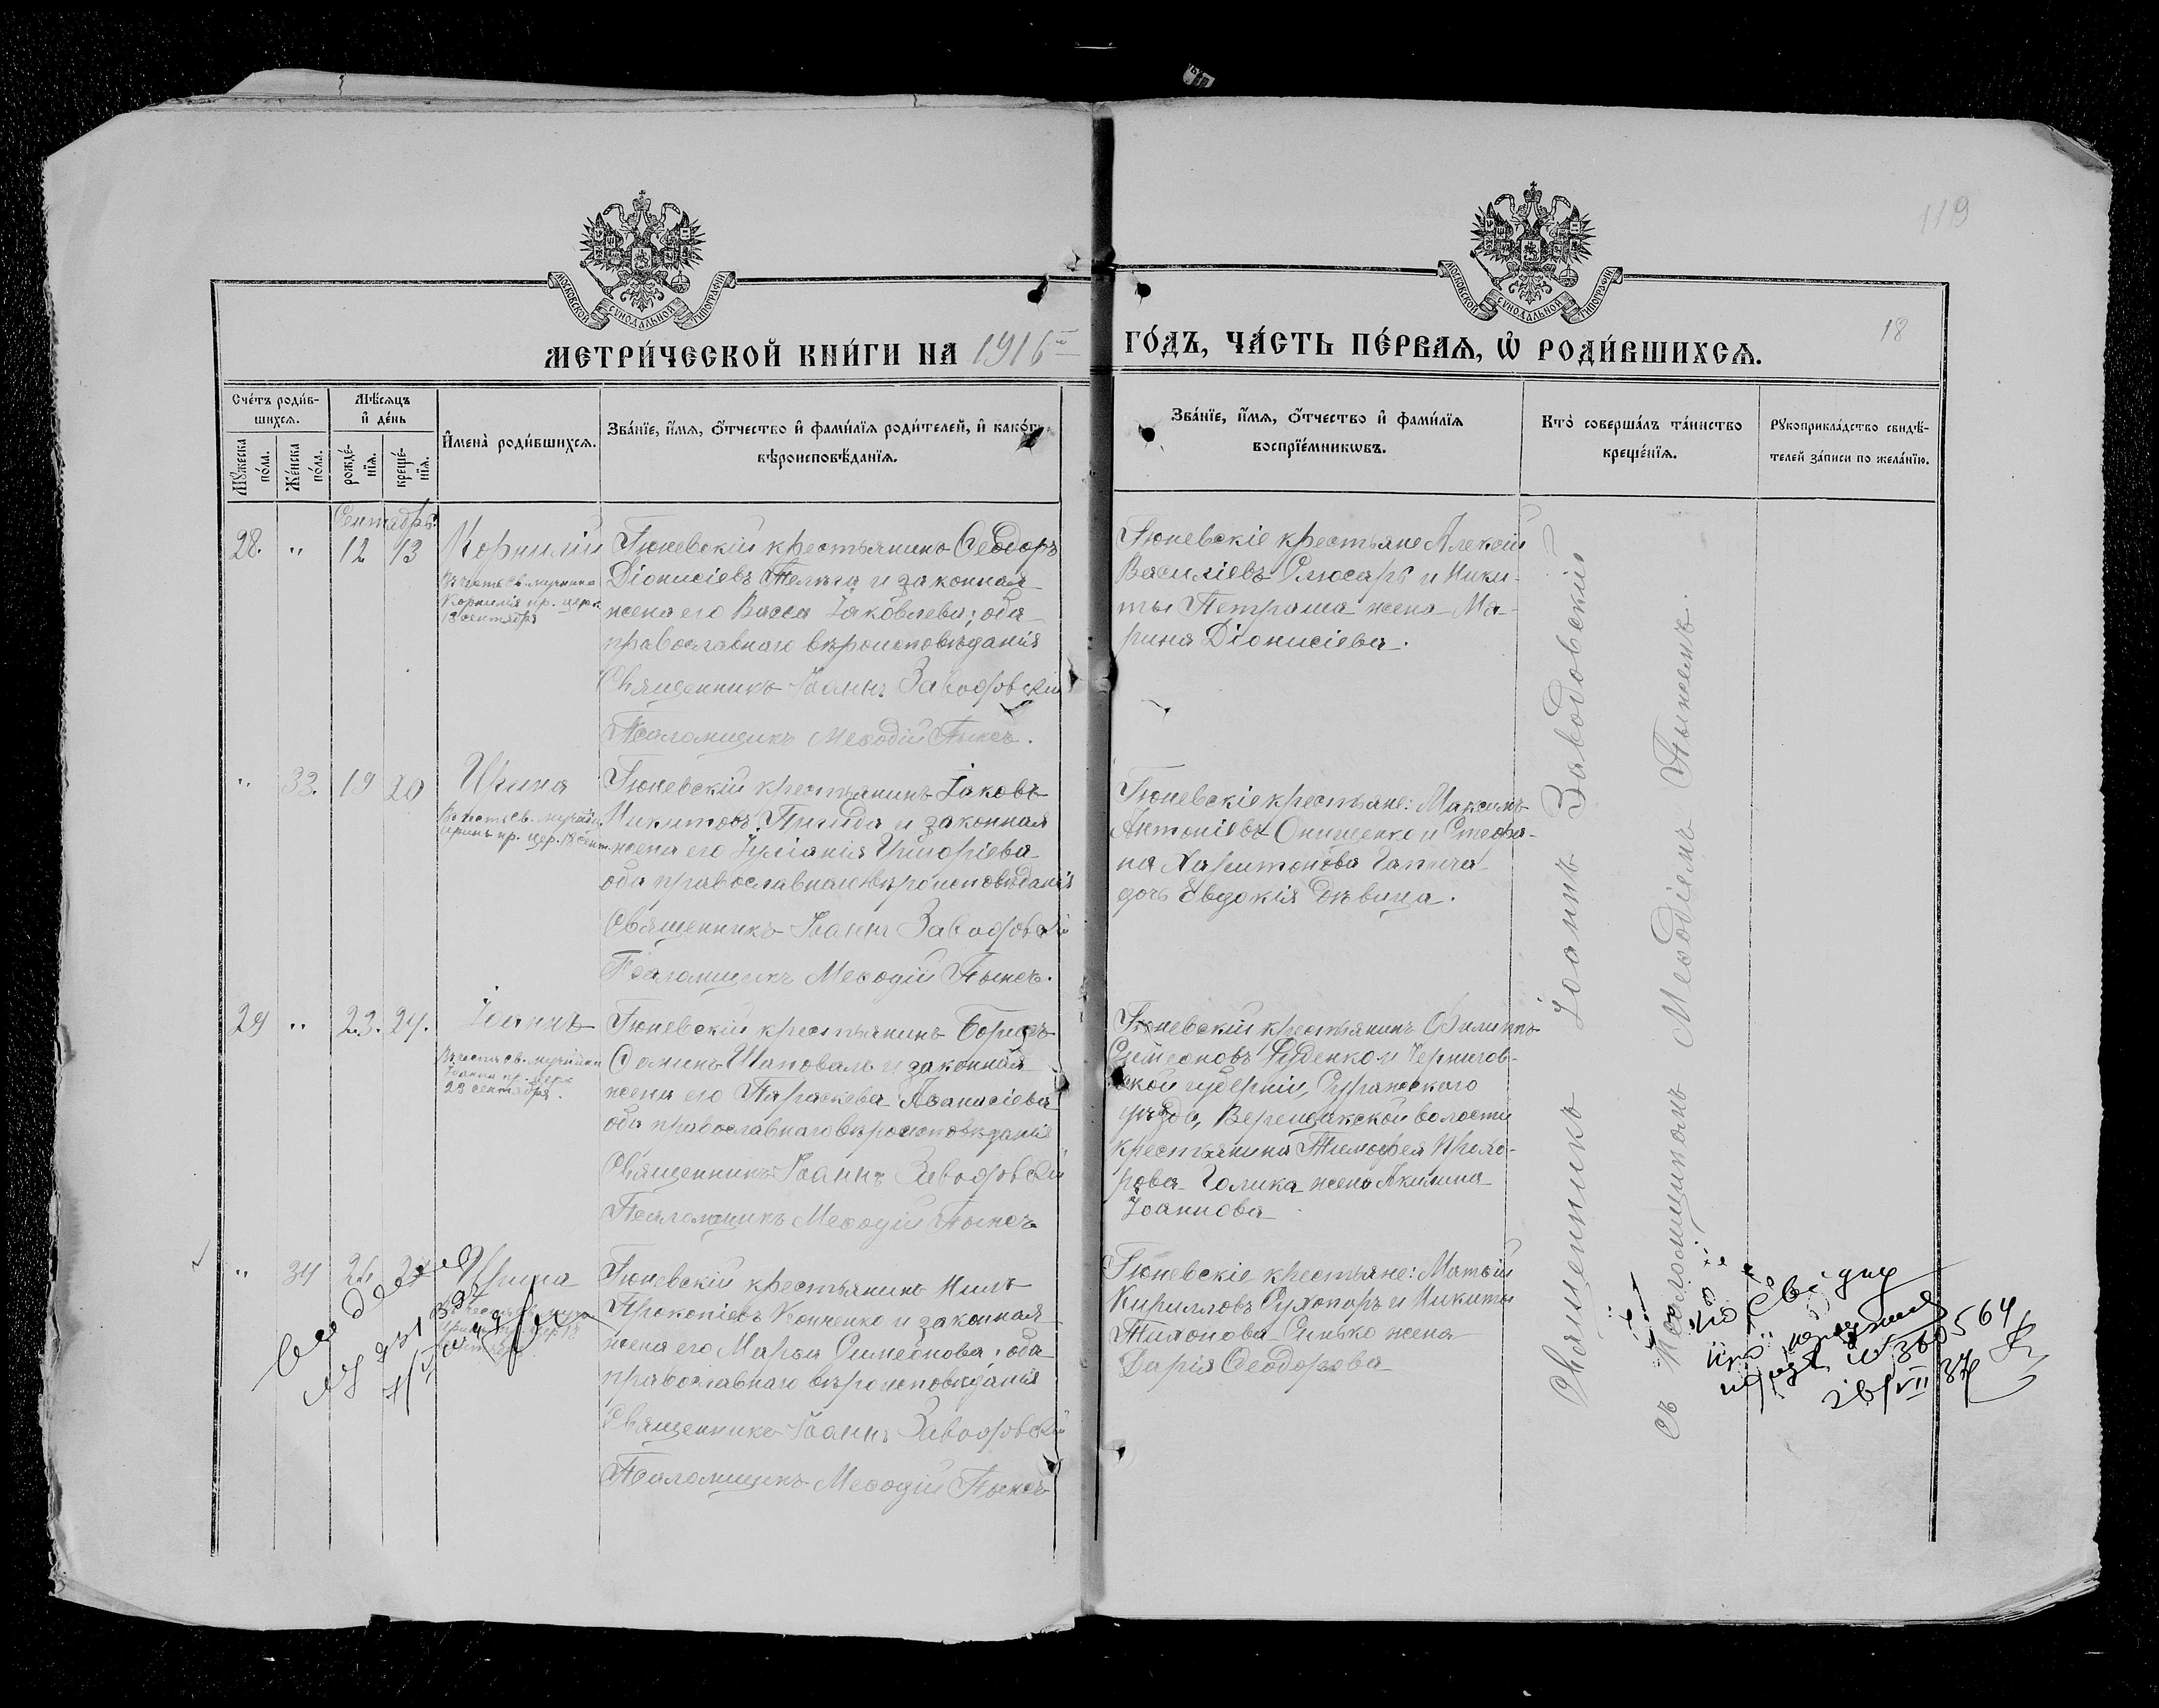 119
МОСКОВСКОЙ СѴНОДАЛЬНОЙ ТИПОГРАФІИ
МОСКОВСКОЙ СѴНОДАЛЬНОЙ ТИПОГРАФІИ
МЕТРИ́ЧЕСКОЙ КНИ́ГИ НА 1916й ГО́ДЪ, ЧА́СТЬ ПЕ́РВАѦ, Ѡ҆ РОДИ́ВШИХСѦ.
18
Сче́тъ роди́в-
шихсѧ.
Мѹ́жеска по́ла.
Же́нска по́ла.
Мѣ́сѧцъ
и҆ де́нь
рожде́-
нїѧ.
креще́-
нїѧ.
И҆мена̀ роди́вшихсѧ.
Зва́нїе, и҆́мѧ, ѻ҆́тчество и҆ фами́лїѧ роди́телей, и҆ како́гѡ
вѣроисповѣ́данїѧ.
Зва́нїе, и҆́мѧ, ѻ҆́тчество и҆ фами́лїѧ
воспрїе́мникѡвъ.
Кто̀ соверша́лъ та́инство
креще́нїѧ.
Рѹкоприкла́дство свидѣ́-
телей за́писи по жела́нїю.
Сентябрь.
28. " 12 13 Корнилій
Въ честь св. мученика
Корнилія пр. церк.
13 сентября
Гюневскій крестьянинъ Ѳеодоръ
Діонисіевъ Телѣга и законная
жена его Васса Іаковлева; оба
православнаго вѣроисповѣданія
Священникъ Іоаннъ Заводовскій
Псаломщикъ Меѳодій Пыжъ.
Гюневскіе крестьяне Алексій
Василіевъ Слюсарь и Ники-
ты Петраша жена Ма-
рина Діонисіева.
" 33. 19 20 Ирина
Въ честь св. мучени.
Ирины пр. цер. 18 сент.
Гюневскій крестьянинъ Іаковъ
Никитовъ Пригода и законная
жена его Іуліанія Григоріева
оба православнаго вѣроисповѣданія
Священникъ Іоаннъ Заводовскій
Псаломщикъ Меѳодій Пыжъ.
Гюневскіе крестьяне: Максимъ
Антоніевъ Онищенко и Стефа-
на Харитонова
дочь Евдокія дѣвица.
29 " 23. 24. Іоаннъ
Въ честь св. мученик
Іоанна пр. церк
23 сентября.
Гюневскій крестьянинъ Борисъ
Ѳоминъ Шаповалъ и законная
жена его Параскева Аѳанасіева
оба православнаго вѣроисповѣданія
Священникъ Іоаннъ Заводовскій
Псаломщикъ Меѳодій Пыжъ
Гюневскій крестьянинъ Филиппъ
Симеоновъ Руденко и Чернигов-
ской губерніи, Суражскаго
уѣзда, Верещакской волости
крестьянина Тимоѳея Прохо-
рова Голика жена Акилина
Іоаннова
" 34 Ирина
Гюневскій крестьянинъ Нилъ
Прокопіевъ Конченко и законная
жена его Марѳа Симеонова; оба
православнаго вѣроисповѣданія
Священникъ Іоаннъ Заводовскій
Псаломщикъ Меѳодій Пыжъ
Гюневскіе крестьяне: Матѳій
Кирилловъ Сухопаръ и Никиты
Тихонова Синько жена
Дарія Ѳеодорова
Священникъ Іоаннъ Заводовскій
съ Псаломщикомъ Меѳодіемъ Пыжемъ.